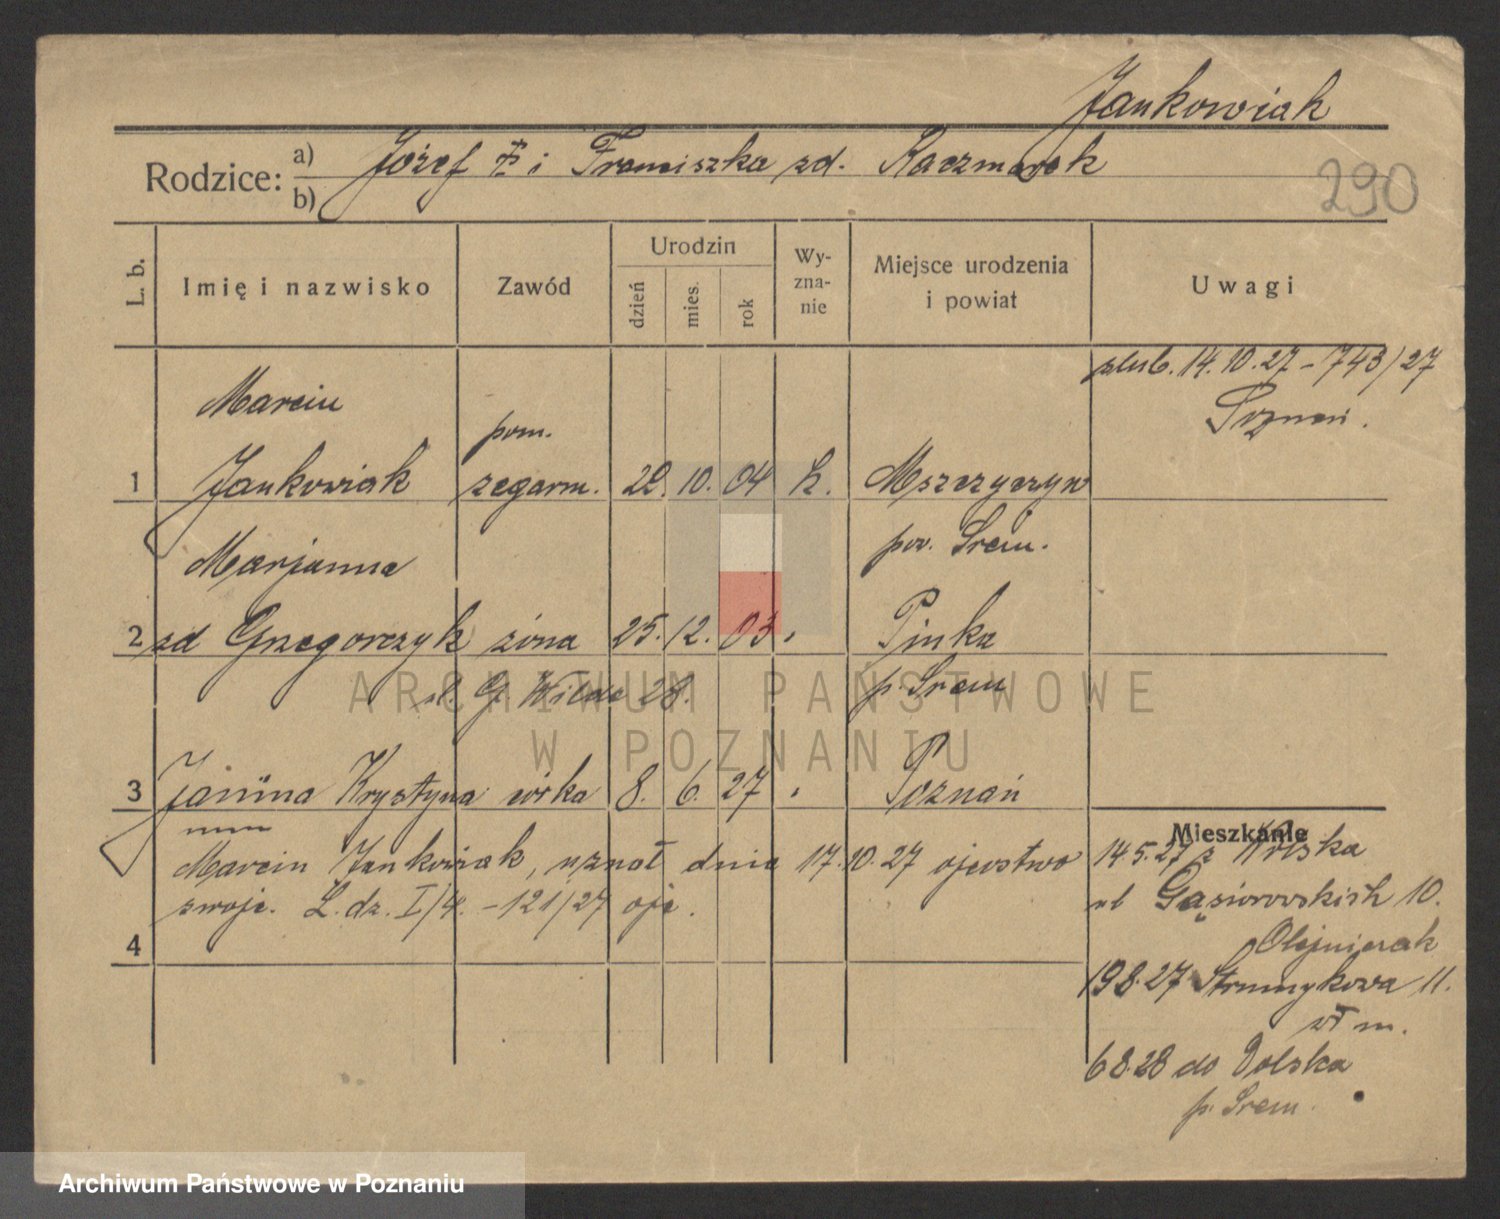 Jankowiak
Rodzice: a) Józef i Franciszka zd. Kaczmarek
b)
290
L. b.
Imię i nazwisko
Zawód
Urodzin
dzień
mies.
rok
Wy-
zna-
nie
Miejsce urodzenia
i powiat
Uwagi
ślub. 14.10.27 - 743/27
Poznań.
Marcin
pom.
1 Jankowiak zegarm. 22. 10. 04 k. Mszczyczyn
pow. Śrem.
Marjanna
2 zd Grzegorczyk żona 25. 12. 03 Pinka
G. Wilda 28. p. Śrem
3 Janina Krystyna córka 8. 6. 27 Poznań
Mieszkanie
Marcin Jankowiak, uznał dnia 17.10.27 ojcostwo
swoje. L. dz. I/4. - 121/27 ojc.
4
14.5.27 z Wolska
ul Gąsiorowskich 10.
Olejniczak
19 8.27 Strumykowa 11.
wł m.
6 8.28 do Dolska
p. Śrem.
ARCHIWUM PAŃSTWOWE
W POZNANIU
Archiwum Państwowe w Poznaniu